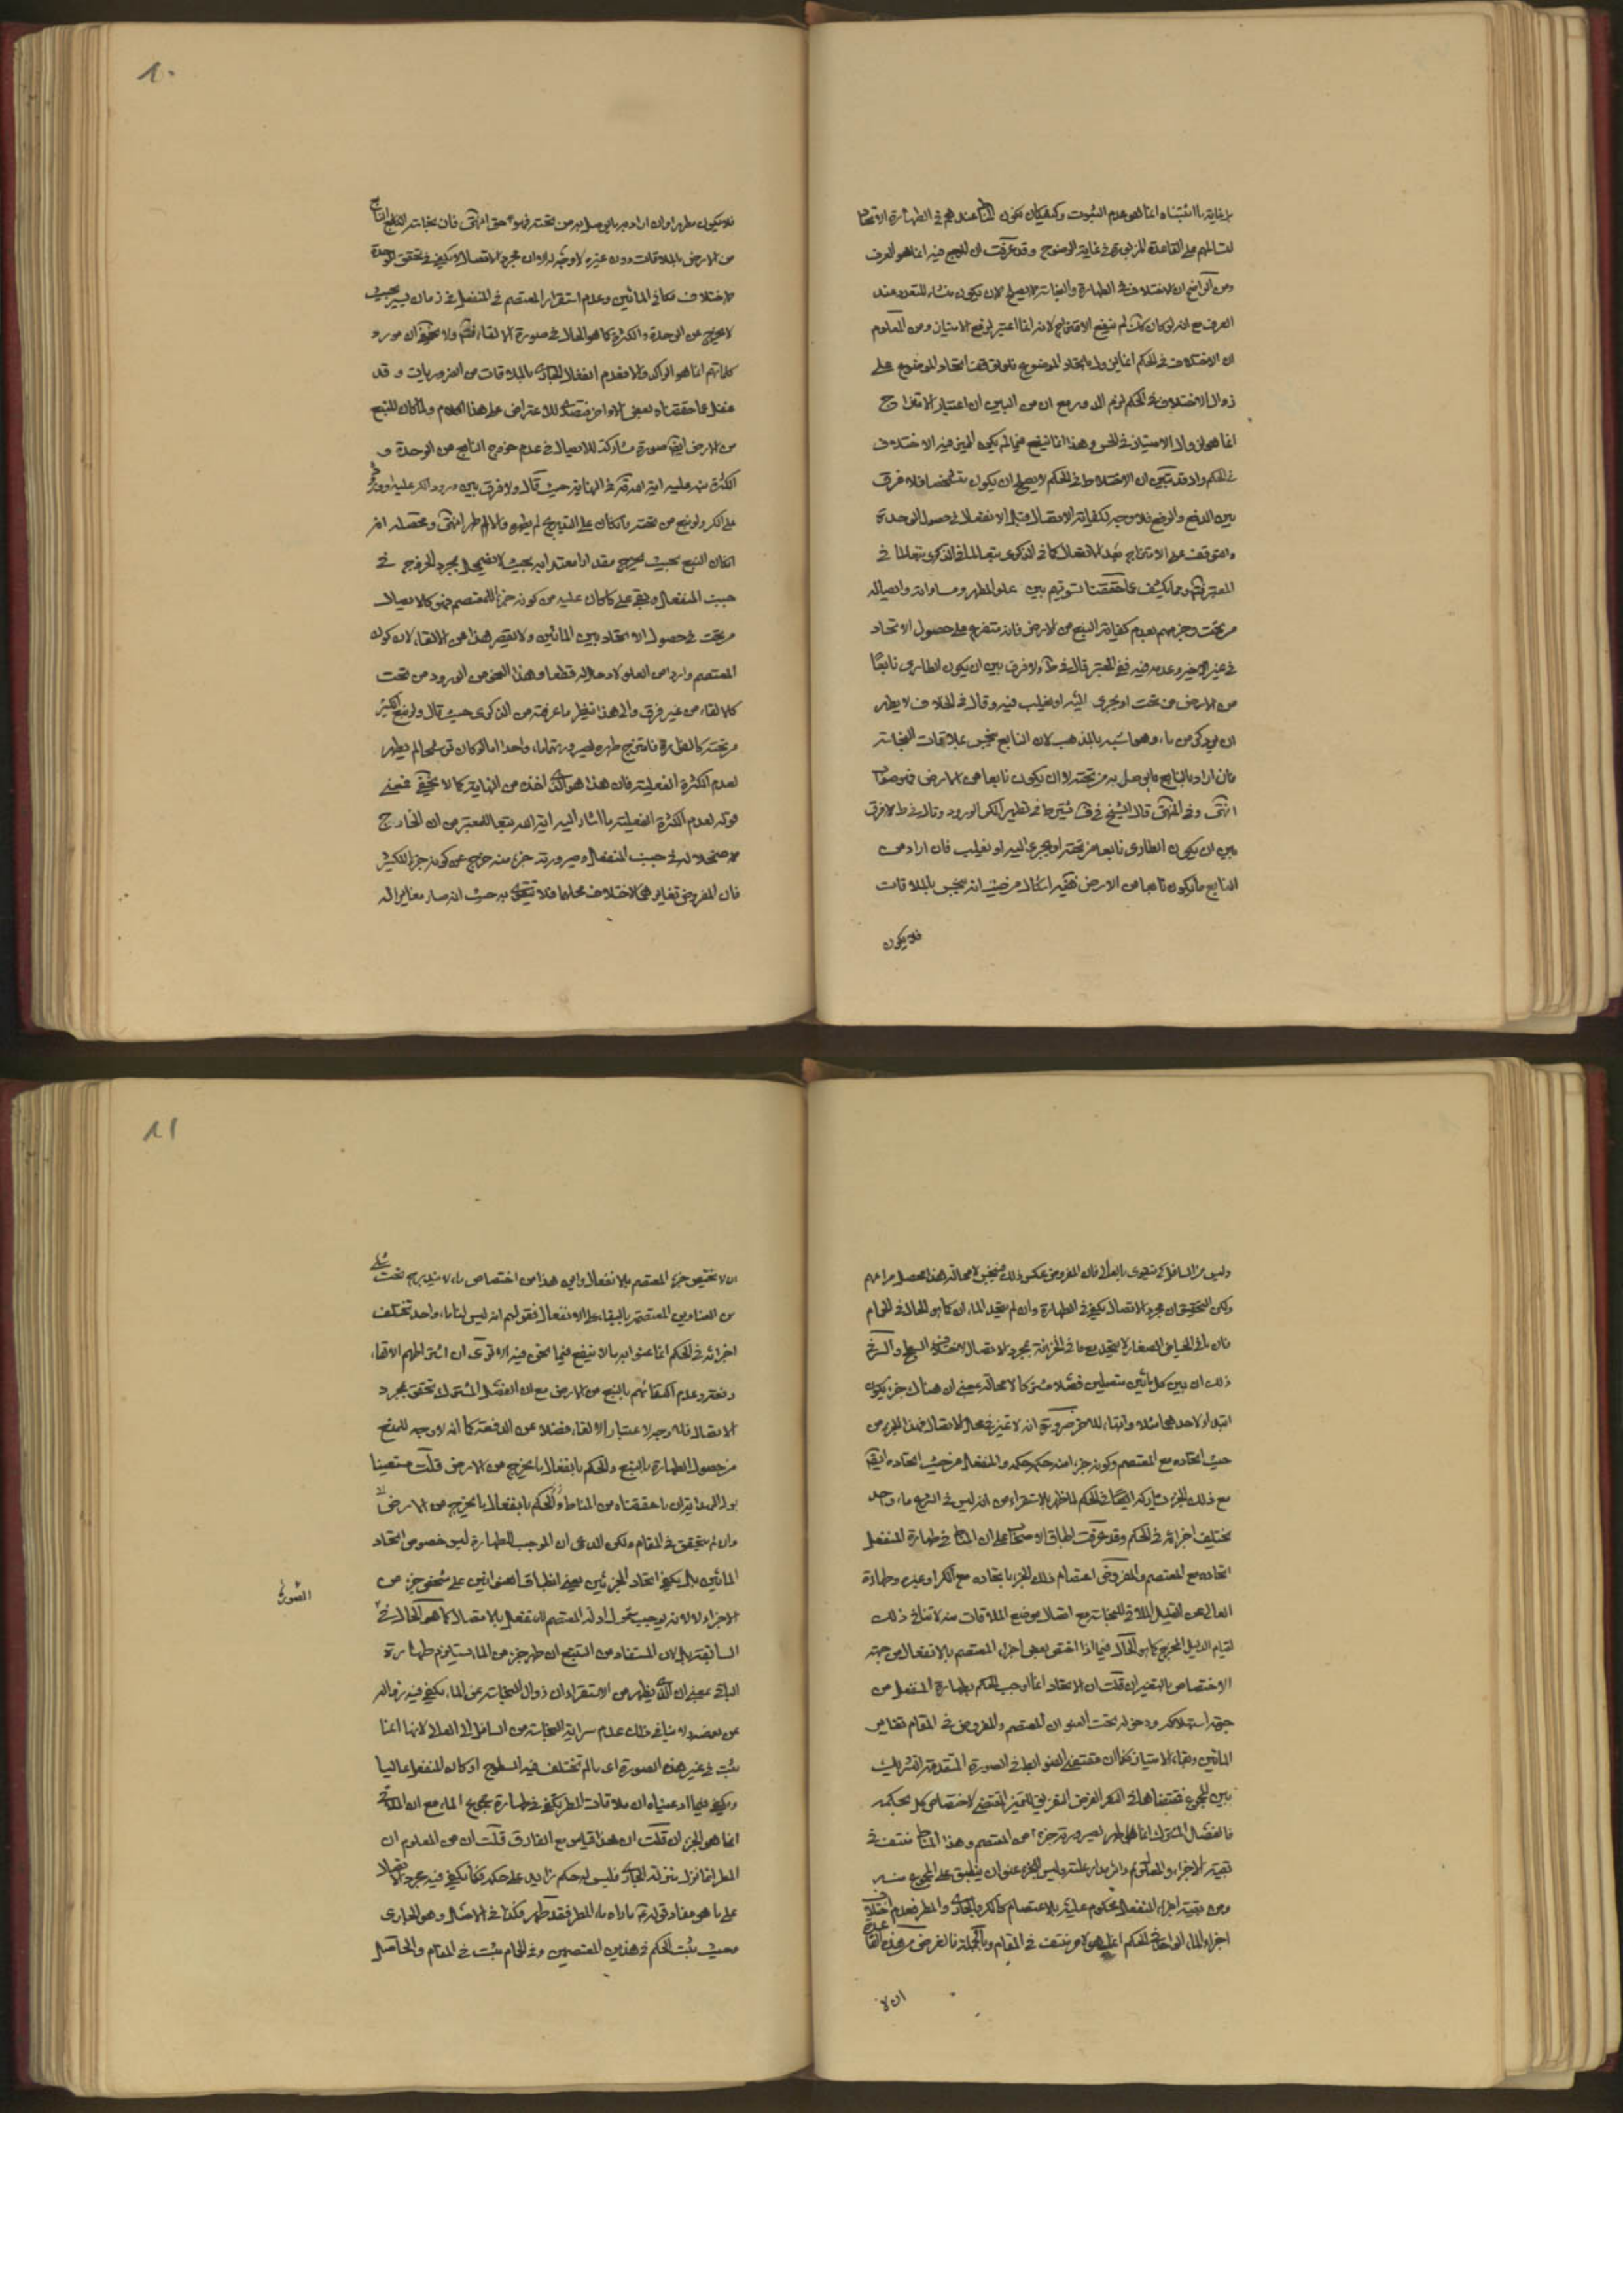 بل غاية ما اثبتناه انما هو عدم الثبوت وكيف كان فكون المناط عندهم في الطهارة الاتحاد
لتسالمهم على القاعدة المزبورة في غاية الوضوح وقد عرفت ان المرجع فيه انما هو العرف
ومن الواضح ان الاختلاف في الطهارة والنجاسة لا يصلح لان يكون منشاء للتعدد عند
العرف مع انه لو كان كذلك لم ينفع الامتزاج لانه انما اعتبر لرفع الامتياز ومن المعلوم
ان الاختلاف في الحكم انما يزول باتحاد الموضوع فلو توقف اتحاد الموضوع على
زوال الاختلاف في الحكم لزم الدور مع ان من البين ان اعتبار الامتزاج
انما هو لزوال الامتياز في الحس وهذا انما ينفع فيما لم يكن المميز فيه الاختلاف
في الحكم واذ قد تبين ان الاختلاط في الحكم لا يصلح ان يكون مشخصا فلا فرق
بين الدفع والرفع فلا وجه لكفاية الاتصال قبل الانفعال في حصول الوحدة
والتوقف على الامتزاج بعد الانفعال كما في الذكرى تبعا لما في
المعتبر ومما يكشف عما حققنا تسويتهم بين علو المطهر ومساواته واتصاله
من تحت وجزمهم بعدم كفاية النبع من الارض فانه متفرع على حصول الاتحاد
في غير الاخير وعدمه فيه ففي المعتبر قال في ط ولا فرق بين ان يكون الطاري نابعا
من الارض من تحت او يجري اليه او يغلب فيه وقال في الخلاف لا يطهر
الا ان يرد كر من ماء وهو اشبه بالمذهب لان النابع ينجس بملاقات النجاسة
فان اراد بالنابع ما يوصل به من تحته لا ان يكون نابعا من الارض فهو صواب
انتهى وفي المنتهى قال الشيخ في ف يشترط في تطهير الكر الورود وقال في ط لا فرق
بين ان يكون الطاري نابعا من تحته او يجري اليه او يغلب فان اراد من
النابع ما يكون نابعا من الارض ففيه اشكال من حيث انه ينجس بالملاقات
فلا يكون
١٠
فلا يكون مطهرا وان اراد به ما يوصل به من تحته فهو حق انتهى فان نجاسة النابع
من الارض بالملاقات دون غيره لا وجه له الا ان مجرد الاتصال لا يكفي في تحقق الوحدة
لاختلاف مكاني المائين وعدم استقرار المعتصم في المنفعل في زمان يسير بحيث
لا يخرج عن الوحدة والكثرة كما هو الحال في صورة الالقاء ولا يخفى ان مورد
كلماتهم انما هو الراكد والا فعدم انفعال الجاري بالملاقات من الضروريات وقد
غفل عما حققناه بعض الاواخر فتصدى للاعتراض على هذا الكلام ولما كان للنبع
من الارض ايضا صورة مشاركة للاتصال في عدم خروج النابع من الوحدة و
الكثرة نبه عليه اية الله قده في النهاية حيث قال ولا فرق بين ورود الكر عليه ووروده
على الكر ولو نبع من تحته فان كان على التدريج لم يطهره والا طهر انتهى ومحصله انه
اذا كان النبع بحيث يخرج مقدارا معتدا به بحيث لا يضمحل بمجرد الخروج في
جنب المنفعل وبقي على ما كان عليه من كونه جزءا للمعتصم فهو كالاتصال
من تحت في حصول الاتحاد بين المائين ولا يقصر هذا من الالقاء لان كون
المعتصم واردا من العلو لا دخل له قطعا وهذا النحو من الورود من تحت
كالالقاء من غير فرق والى هذا ينظر ما عرفته من الذكرى حيث قال ولو نبع الكثير
من تحته كالفوارة فامتزج طهره لصيرورتهما ماء واحدا اما لو كان ترشحا لم يطهر
لعدم الكثرة الفعلية فان هذا هو الذي اخذه من النهاية كما لا يخفى فمعنى
قوله لعدم الكثرة الفعلية ما اشار اليه اية الله تبعا للمعتبر من ان الخارج
لاضمحلاله في جنب المنفعل وصيرورته جزء منه خرج عن كونه جزءا للكثير
فان المفروض تغايرهما لاختلاف محلهما فلا تتقوى به حيث انه صار مغايرا له
وليس من السافل كي تتقوى بالعالي فان المفروض عكس ذلك فينجس لا محالة هذا محصل مرامهم
ولكن التحقيق ان مجرد الاتصال يكفي في الطهارة وان لم يتحد الماءان كما هو الحال في الحمام
فان ماء الحياض الصغار لا يتحد مع ما في الخزانة بمجرد الاتصال لاختلاف السطح والسر في
ذلك ان بين كل مائين متصلين فصلا مشتركا لا محالة بمعنى ان هناك جزء يكون
ابتداء لاحدهما مثلا وانتهاء للاخر ضرورة انه لا تميز في محل الاتصال فهذا الجزء من
حيث اتحاده مع المعتصم وكونه جزء منه حكمه حكمه والمنفعل من حيث اتحاده ايضا
مع ذلك الجزء يشاركه ايضا في الحكم لما ظهر بالاستقراء من انه ليس في الشرع ماء واحد
يختلف اجزائه في الحكم وقد عرفت اطباق الاصحاب على ان المناط في طهارة المنفعل
اتحاده مع المعتصم والمفروض اعتصام ذلك الجزء باتحاده مع الكر او غيره وطهارة
العالي من القليل الملاقي للنجاسة مع اتصال موضع الملاقات منه لا تنافي ذلك
لقيام الدليل المخرج كما هو الحال فيما اذا اختص بعض اجزاء المعتصم بالانفعال من جهة
الاختصاص بالتغير ان قلت ان الاتحاد انما اوجب الحكم بطهارة المنفعل من
جهة استهلاكه ودخوله تحت العنوان المعتصم والمفروض في المقام تغاير
المائين وبقاء الامتياز فكما ان مقتضى الضوابط في الصورة المتقدمة التشريك
بين المجموع فمقتضاها في الفرض التفريق للتميز المقتضي لاختصاص كل بحكمه
فالفصل المشترك انما طهر لصيرورته جزءا من المعتصم وهذا المناط منتف في
بقية الاجزاء والمعلول دائر مدار علته وليس للجزء عنوان ينطبق على المجموع منه
ومن بقية اجزاء المنفعل محكوم عليه بالاعتصام كالكر والجاري والمطر فعدم اختلاف
اجزاء الماء الواحد في الحكم انما هو لامر منتف في المقام وبالجملة فالغرض من هذه القاعدة
ان لا
١١
ان لا يختص جزء المعتصم بالانفعال واين هذا من اختصاص ماء لا يندرج تحت شيء
من العناوين المعتصمة بالبقاء على الانفعال فقولهم انه ليس لنا ماء واحد تختلف
اجزائه في الحكم انما عنوا به ما لا ينفع فيما نحن فيه الا ترى ان اشتراطهم الالقاء
دفعة وعدم اكتفائهم بالنبع من الارض مع ان الفصل المشترك تحقق بمجرد
الاتصال فلا وجه لاعتبار الالقاء فضلا عن الدفعة كما انه لا وجه للمنع
من حصول الطهارة بالنبع والحكم بانفعال ما يخرج من الارض قلت مستعينا
بولي الهداية ان ما حققناه من المناط والحكم بانفعال ما يخرج من الارض
وان لم يتحقق في المقام ولكن المدعى ان الموجب للطهارة ليس خصوص اتحاد
المائين بل يكفي اتحاد الجزئين بمعنى انطباق العنوانين على شخص جزء من
الاجزاء لا لانه يوجب شمول ادلة المعتصم للمنفعل بالاتصال كما هو الحال في
الصورة
السابقة بل لان المستفاد من التتبع ان طهر جزء من الماء يستلزم طهارة
الباقي بمعنى ان الذي يظهر من الاستقراء ان زوال النجاسة عن الماء يكفي فيه زواله
عن بعضه ولا ينافي ذلك عدم سراية النجاسة من السافل الى العالي لانها انما
يثبت في غير هذه الصورة اي ما لم تختلف فيه السطوح او كان المنفعل عاليا
ويكفي فيما ادعيناه ان ملاقات المطر يكفي في طهارة مجموع الماء مع ان الملاقي
انما هو الجزء ان قلت ان هذا قياس مع الفارق قلت ان من المعلوم ان
المطر انما نزل منزلة الجاري فليس له حكم زائد على حكمه فكما يكفي فيه مجرد الاتصال
على ما هو مفاد قوله ع ما راه ماء المطر فقد طهر فكذا في الامثال وهو الجاري
وحيث ثبت الحكم في هذين المعتصمين وفي الحمام ثبت في المقام والحاصل